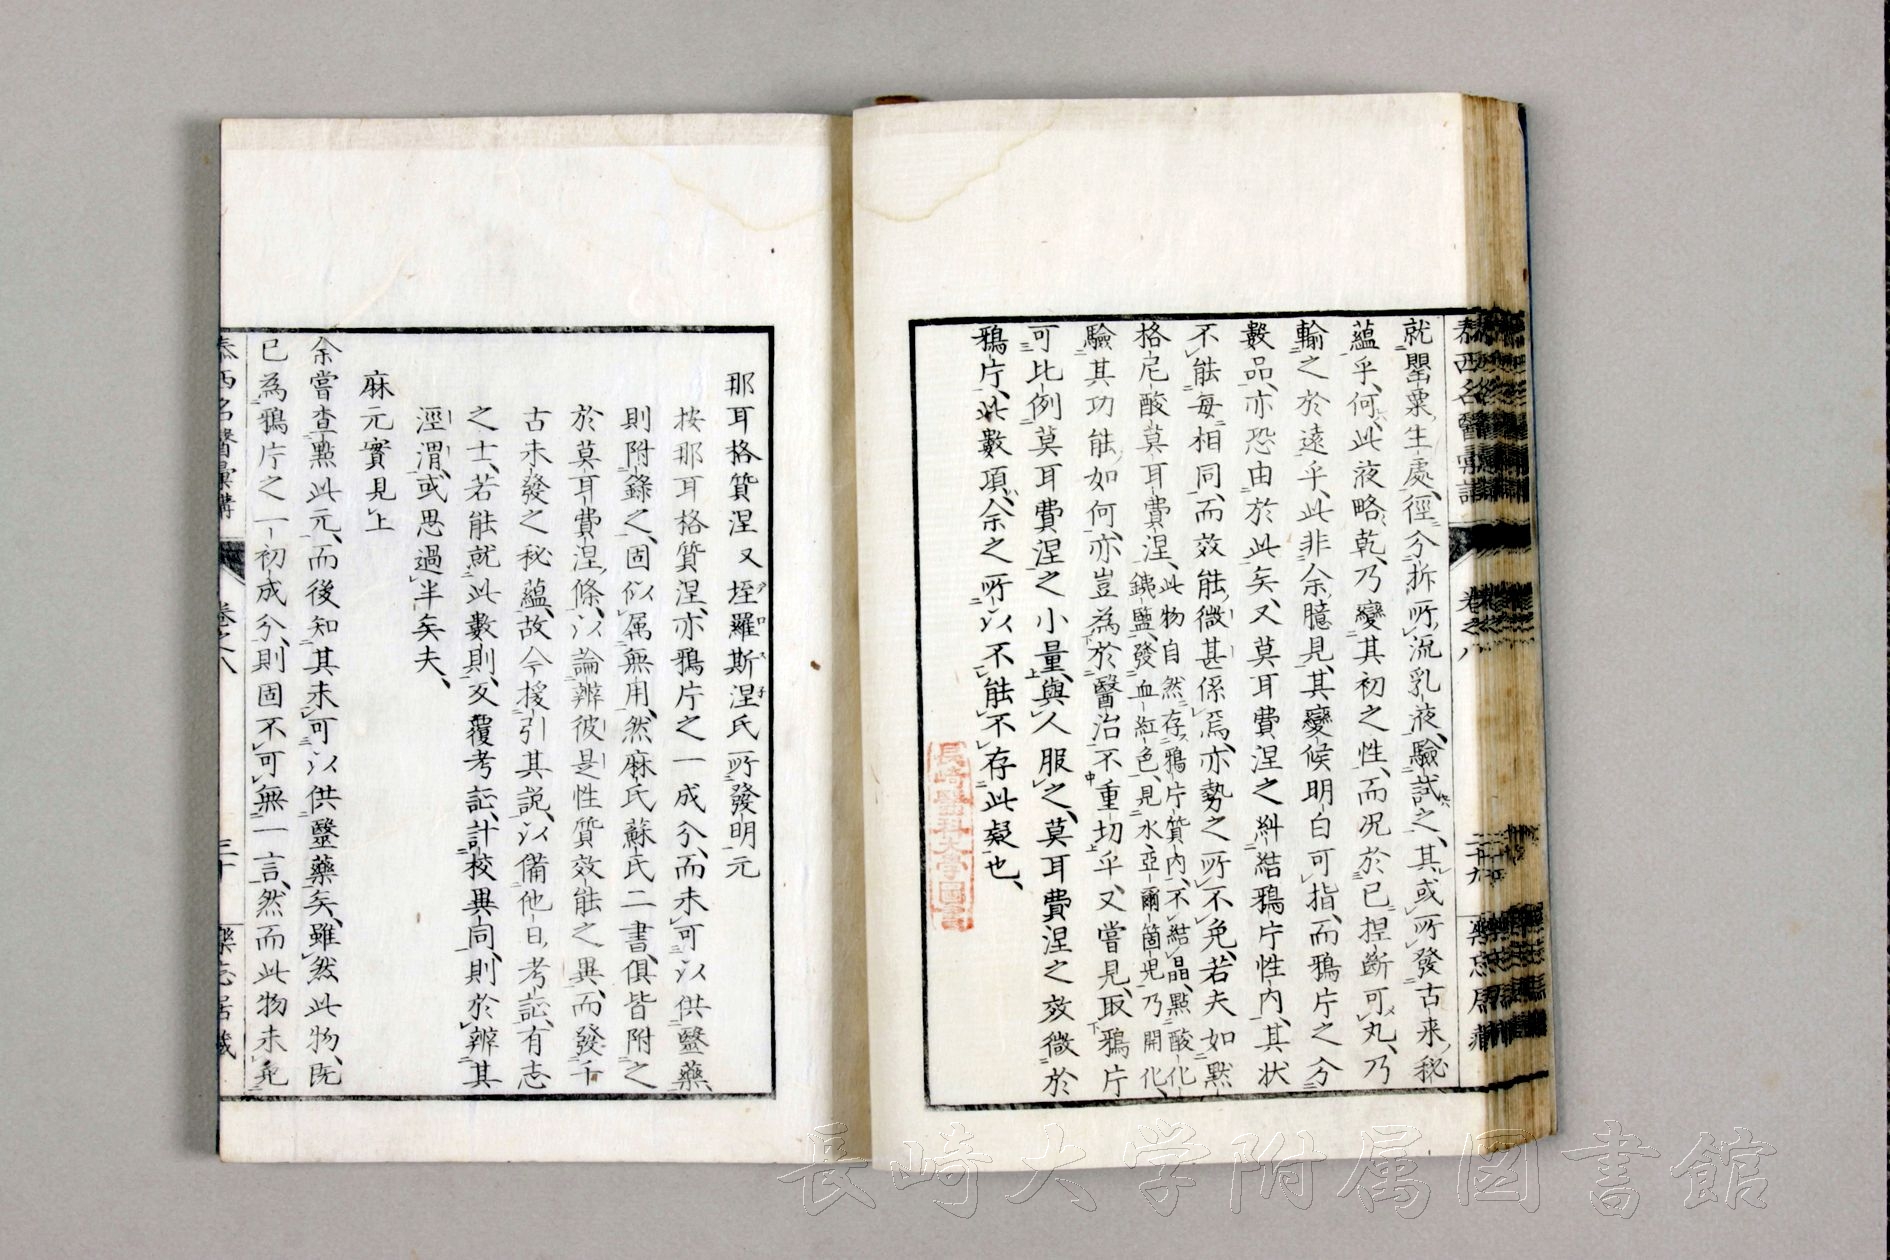 泰西名醫彙講 卷之八 二十九 樂忘居藏
就罌粟生處、徑分拆所流乳液、驗試之、其或所發古来秘
蘊乎、何此液略乾、乃變其初之性、而况於已捏斷可丸、乃
輸之於遠乎、此非余臆見、其變候明白可指、而鴉片之分
數品、亦恐由於此矣、又莫耳費涅之糾結鴉片性内、其状
不能每相同、而效能微甚係焉、亦勢之所不免、若夫如黙
格尼酸莫耳費涅、此物自然存鴉片質内、不結晶、點酸化
銕鹽、發血紅色、見水亞爾箇児乃開化、
驗其功能如何、亦豈為於醫治不重切乎、又嘗見、取鴉片
可比例莫耳費涅之小量、與人服之、莫耳費涅之效微於
鴉片、此數項、余之所以不能不存此疑也、
長崎醫科大學圖書
那耳格箕涅又垤羅斯涅氏所發明元
按那耳格箕涅、亦鴉片之一成分、而未可以供醫藥、
則附錄之、固似属無用、然麻氏蘇氏二書、俱皆附之
於莫耳費涅條、以論辨彼是性質效能之異、而發千
古未發之秘蘊、故今援引其説、以備他日考証、有志
之士、若能就此數則、反覆考証、計校異同、則於辨其
涇渭、或思過半矣夫、
麻元實見上
余嘗查點此元、而後知其未可以供醫藥矣、雖然此物、既
已為鴉片之一初成分、則固不可無一言、然而此物未免
泰西名醫彙講 卷之八 三十 樂忘居藏
長崎大学附属図書館